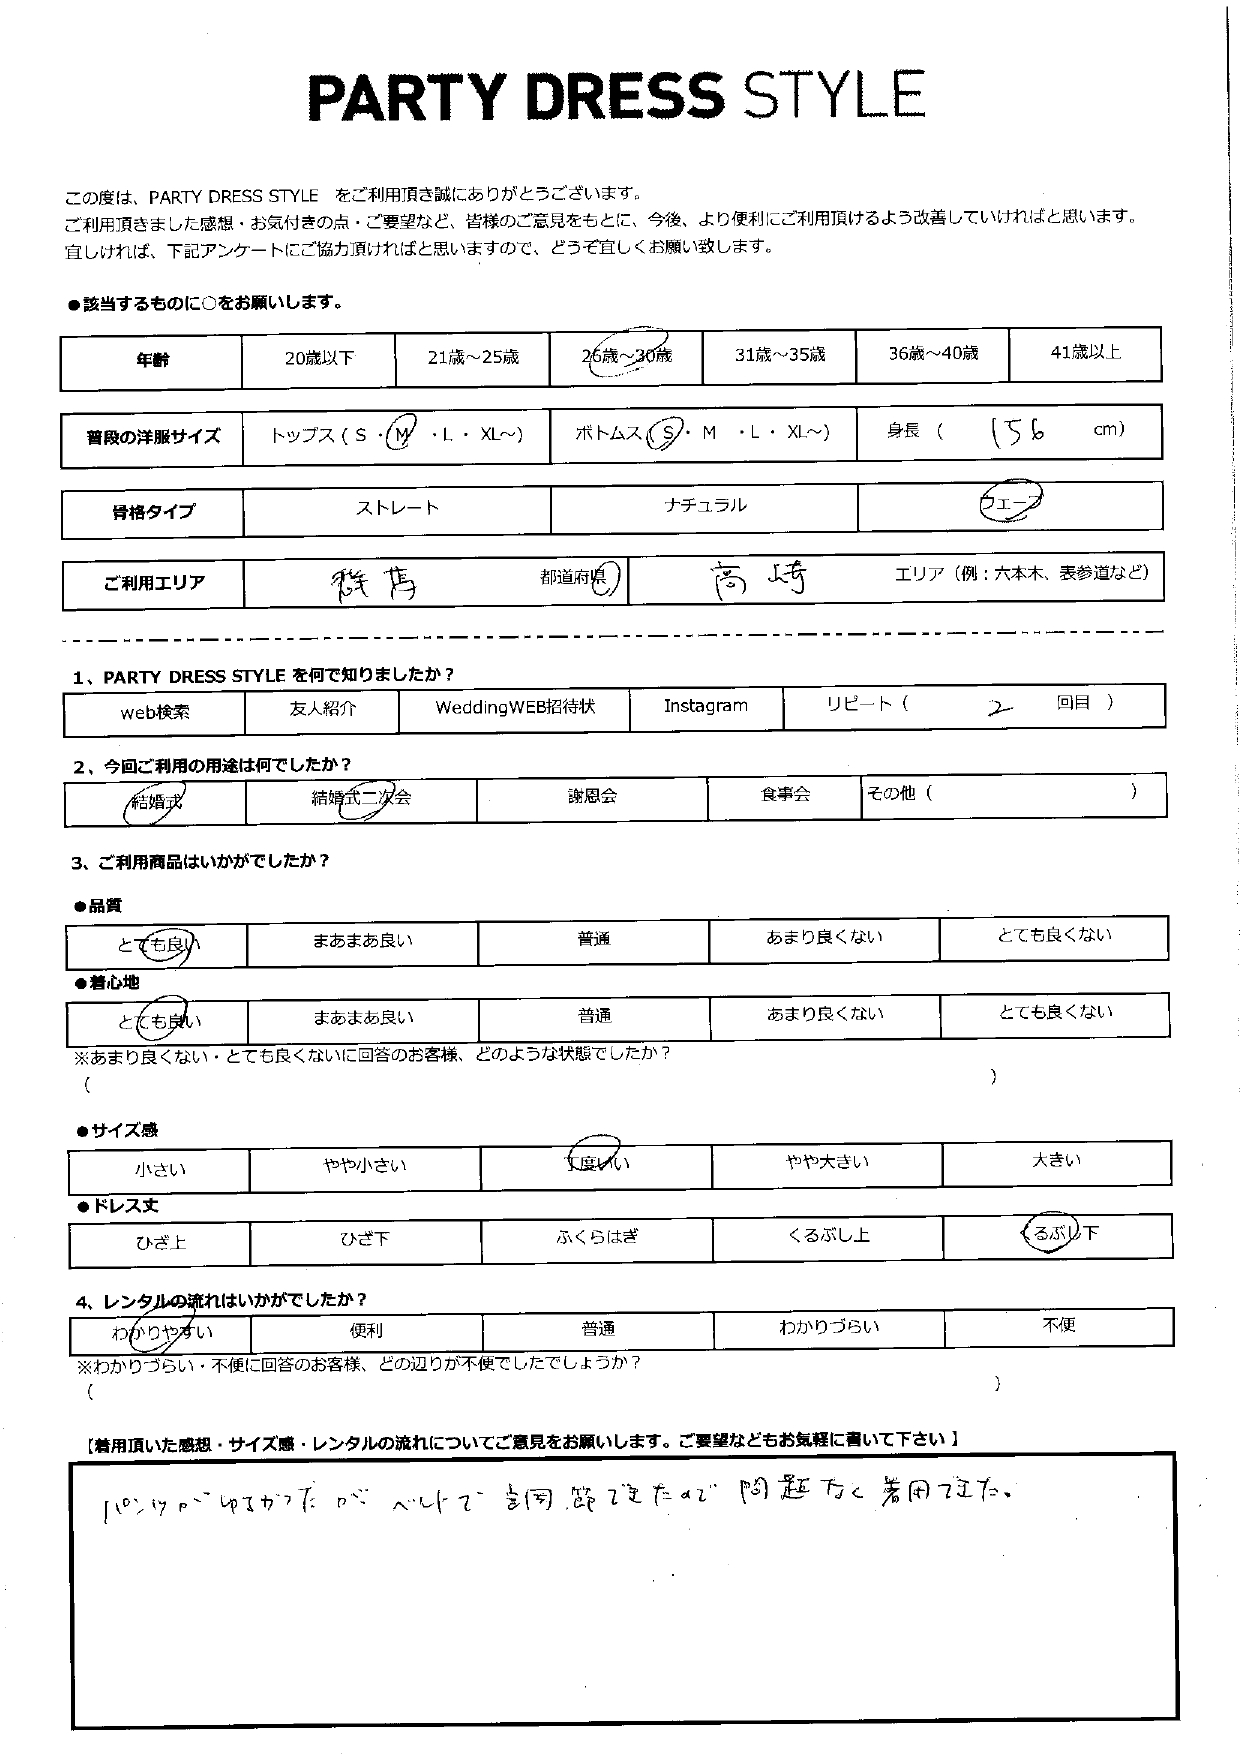 PARTY DRESS STYLE
この度は、PARTY DRESS STYLE をご利用頂き誠にありがとうございます。
ご利用頂きました感想・お気付きの点・ご要望など、皆様のご意見をもとに、今後、より便利にご利用頂けるよう改善していければと思います。
宜しければ、下記アンケートにご協力頂ければと思いますので、どうぞ宜しくお願い致します。
●該当するものに○をお願いします。
年齢 20歳以下 21歳～25歳 26歳～30歳 31歳～35歳 36歳～40歳 41歳以上
普段の洋服サイズ トップス ( S ・ M ・ L ・ XL～) ボトムス ( S ・ M ・ L ・ XL～) 身長 ( 156 cm)
骨格タイプ ストレート ナチュラル ウェーブ
ご利用エリア 群馬 都道府県 高崎 エリア（例：六本木、表参道など）
1、PARTY DRESS STYLE を何で知りましたか？
web検索 友人紹介 WeddingWEB招待状 Instagram リピート（ 2 回目 ）
2、今回ご利用の用途は何でしたか？
結婚式 結婚式二次会 謝恩会 食事会 その他（ ）
3、ご利用商品はいかがでしたか？
●品質
とても良い まあまあ良い 普通 あまり良くない とても良くない
●着心地
とても良い まあまあ良い 普通 あまり良くない とても良くない
※あまり良くない・とても良くないに回答のお客様、どのような状態でしたか？
( )
●サイズ感
小さい やや小さい 丁度いい やや大きい 大きい
●ドレス丈
ひざ上 ひざ下 ふくらはぎ くるぶし上 くるぶし下
4、レンタルの流れはいかがでしたか？
わかりやすい 便利 普通 わかりづらい 不便
※わかりづらい・不便に回答のお客様、どの辺りが不便でしたでしょうか？
( )
【着用頂いた感想・サイズ感・レンタルの流れについてご意見をお願いします。ご要望などもお気軽に書いて下さい 】
パンツがゆるかったが ベルトで 調節できたので 問題なく着用できた。